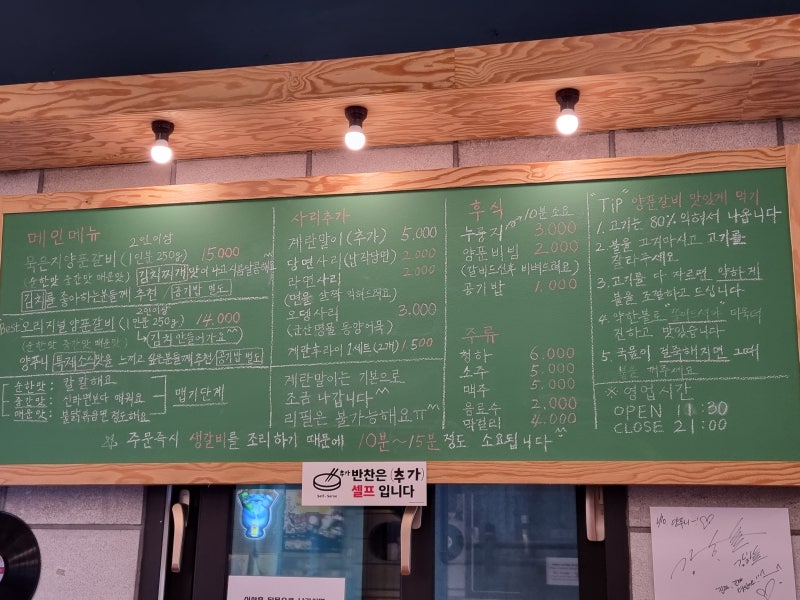 메인메뉴
2인이상
묵은지양푼갈비 (1인분 250g) 15.000
(순한맛 중간맛 매운맛) 김치찌개맛이 나고 시원얼큰해용
김치를 좋아하는분들께 추천 / 공기밥 별도
2인이상
Best 오리지널 양푼갈비 (1인분 250g) 14.000
(순한맛 중간맛 매운맛) 김치 안들어가요^^
양푸니 특제소스맛을 느끼고 싶은분들께추천 / 공기밥 별도
순한맛 : 칼칼해요
중간맛 : 신라면보다 매워요
매운맛 : 불닭볶음면정도해요
맵기단계
사리추가
계란말이 (추가) 5.000
당면사리 (납작당면) 2.000
라면사리 2.000
(면을 살짝 익혀드려요)
오뎅사리 3.000
(군산명물 동양어묵)
계란후라이 1세트 (2개) 1.500
계란말이는 기본으로
조금 나갑니다^^
리필은 불가능해요ㅠ^^
후식
누룽지 10분 소요 3.000
양푼비빔 2.000
(갈비드신후 비벼드려요)
공기밥 1.000
주류
청하 6.000
소주 5.000
맥주 5.000
음료수 2.000
막걸리 4.000
"TiP" 양푼갈비 맛있게 먹기
1. 고기는 80% 익혀서 나옵니다
2. 불을 끄지마시고 고기를
잘라주세요
3. 고기를 다 자르면 약하게
불을 조절하고 드십니다
4. 약한불로
진하고 맛있습니다
5. 국물이 걸쭉해지면 그때
불을 꺼주세요
※ 영업시간
OPEN 11:30
CLOSE 21:00
※ 주문즉시 생갈비를 조리하기 때문에 10분~15분정도 소요됩니다^^
추가 반찬은 (추가)
셀프 입니다
Self-Serve